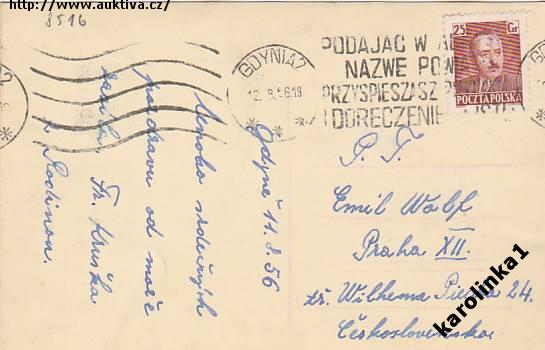 http://www.auktiva.cz/
8516
GDYNIA 2
12.8.56.19
PODAJĄC W A
NAZWĘ POW
PRZYSPIESZASZ P
I DORĘCZENIE
25 Gr
POCZTA POLSKA
Gdyně 11.8.56
Mnoho srdečných
pozdravů od moře
zasílá
Fr. Hruška
s Rodinou.
P. T.
Emil Wolf
Praha XII.
tř. Wilhema Piecka 24.
Československo
karolinka1